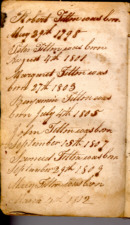 Robert Titton was born
May 29th 1798
John Titton was born
August 4th 1801
Margaret Titton was
born 27th 1803
Benjamin Titton was
born July 4th 1805
John Titton was born
September 15th 1807
Samuel Titton was born
September 29th 1809
Titton was born
March 1812